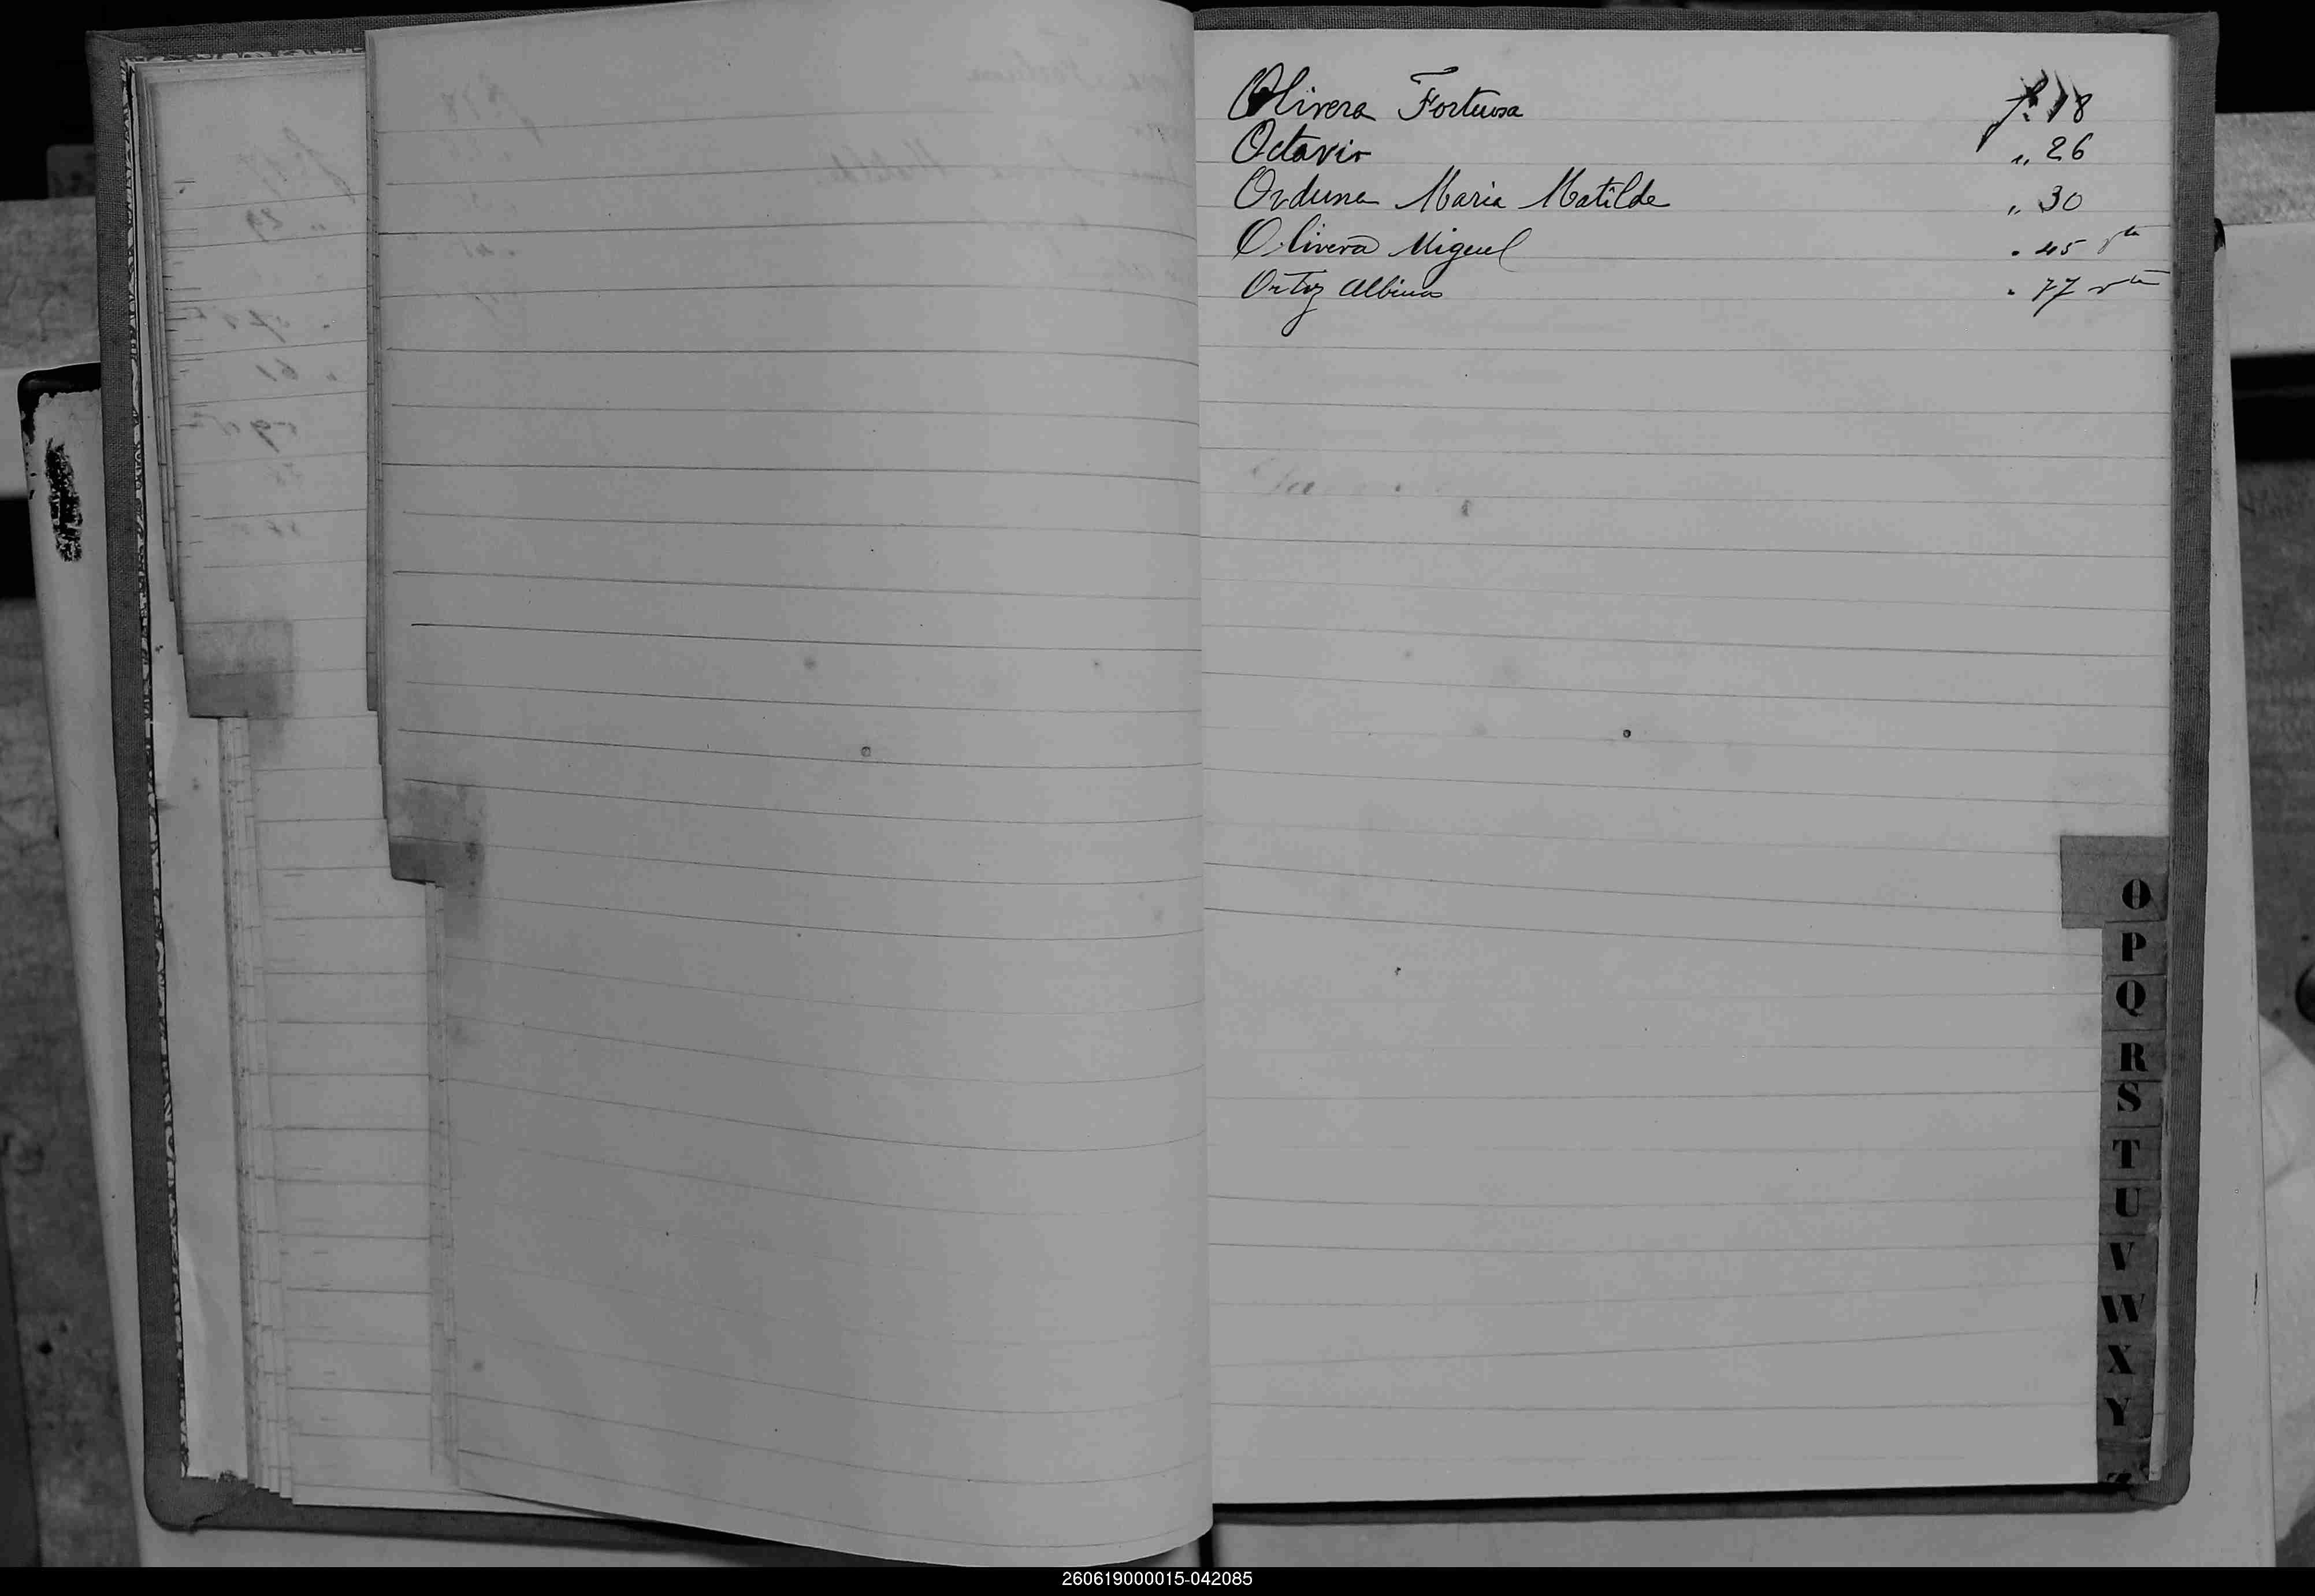 Olivera Fortuosa f. 18
Octavio „ 26
Orduna Maria Matilde „ 30
Olivera Miguel . 45 vta
Ortiz Albino . 77 vta
O
P
Q
R
S
T
U
V
W
X
Y
Z
260619000015-042085